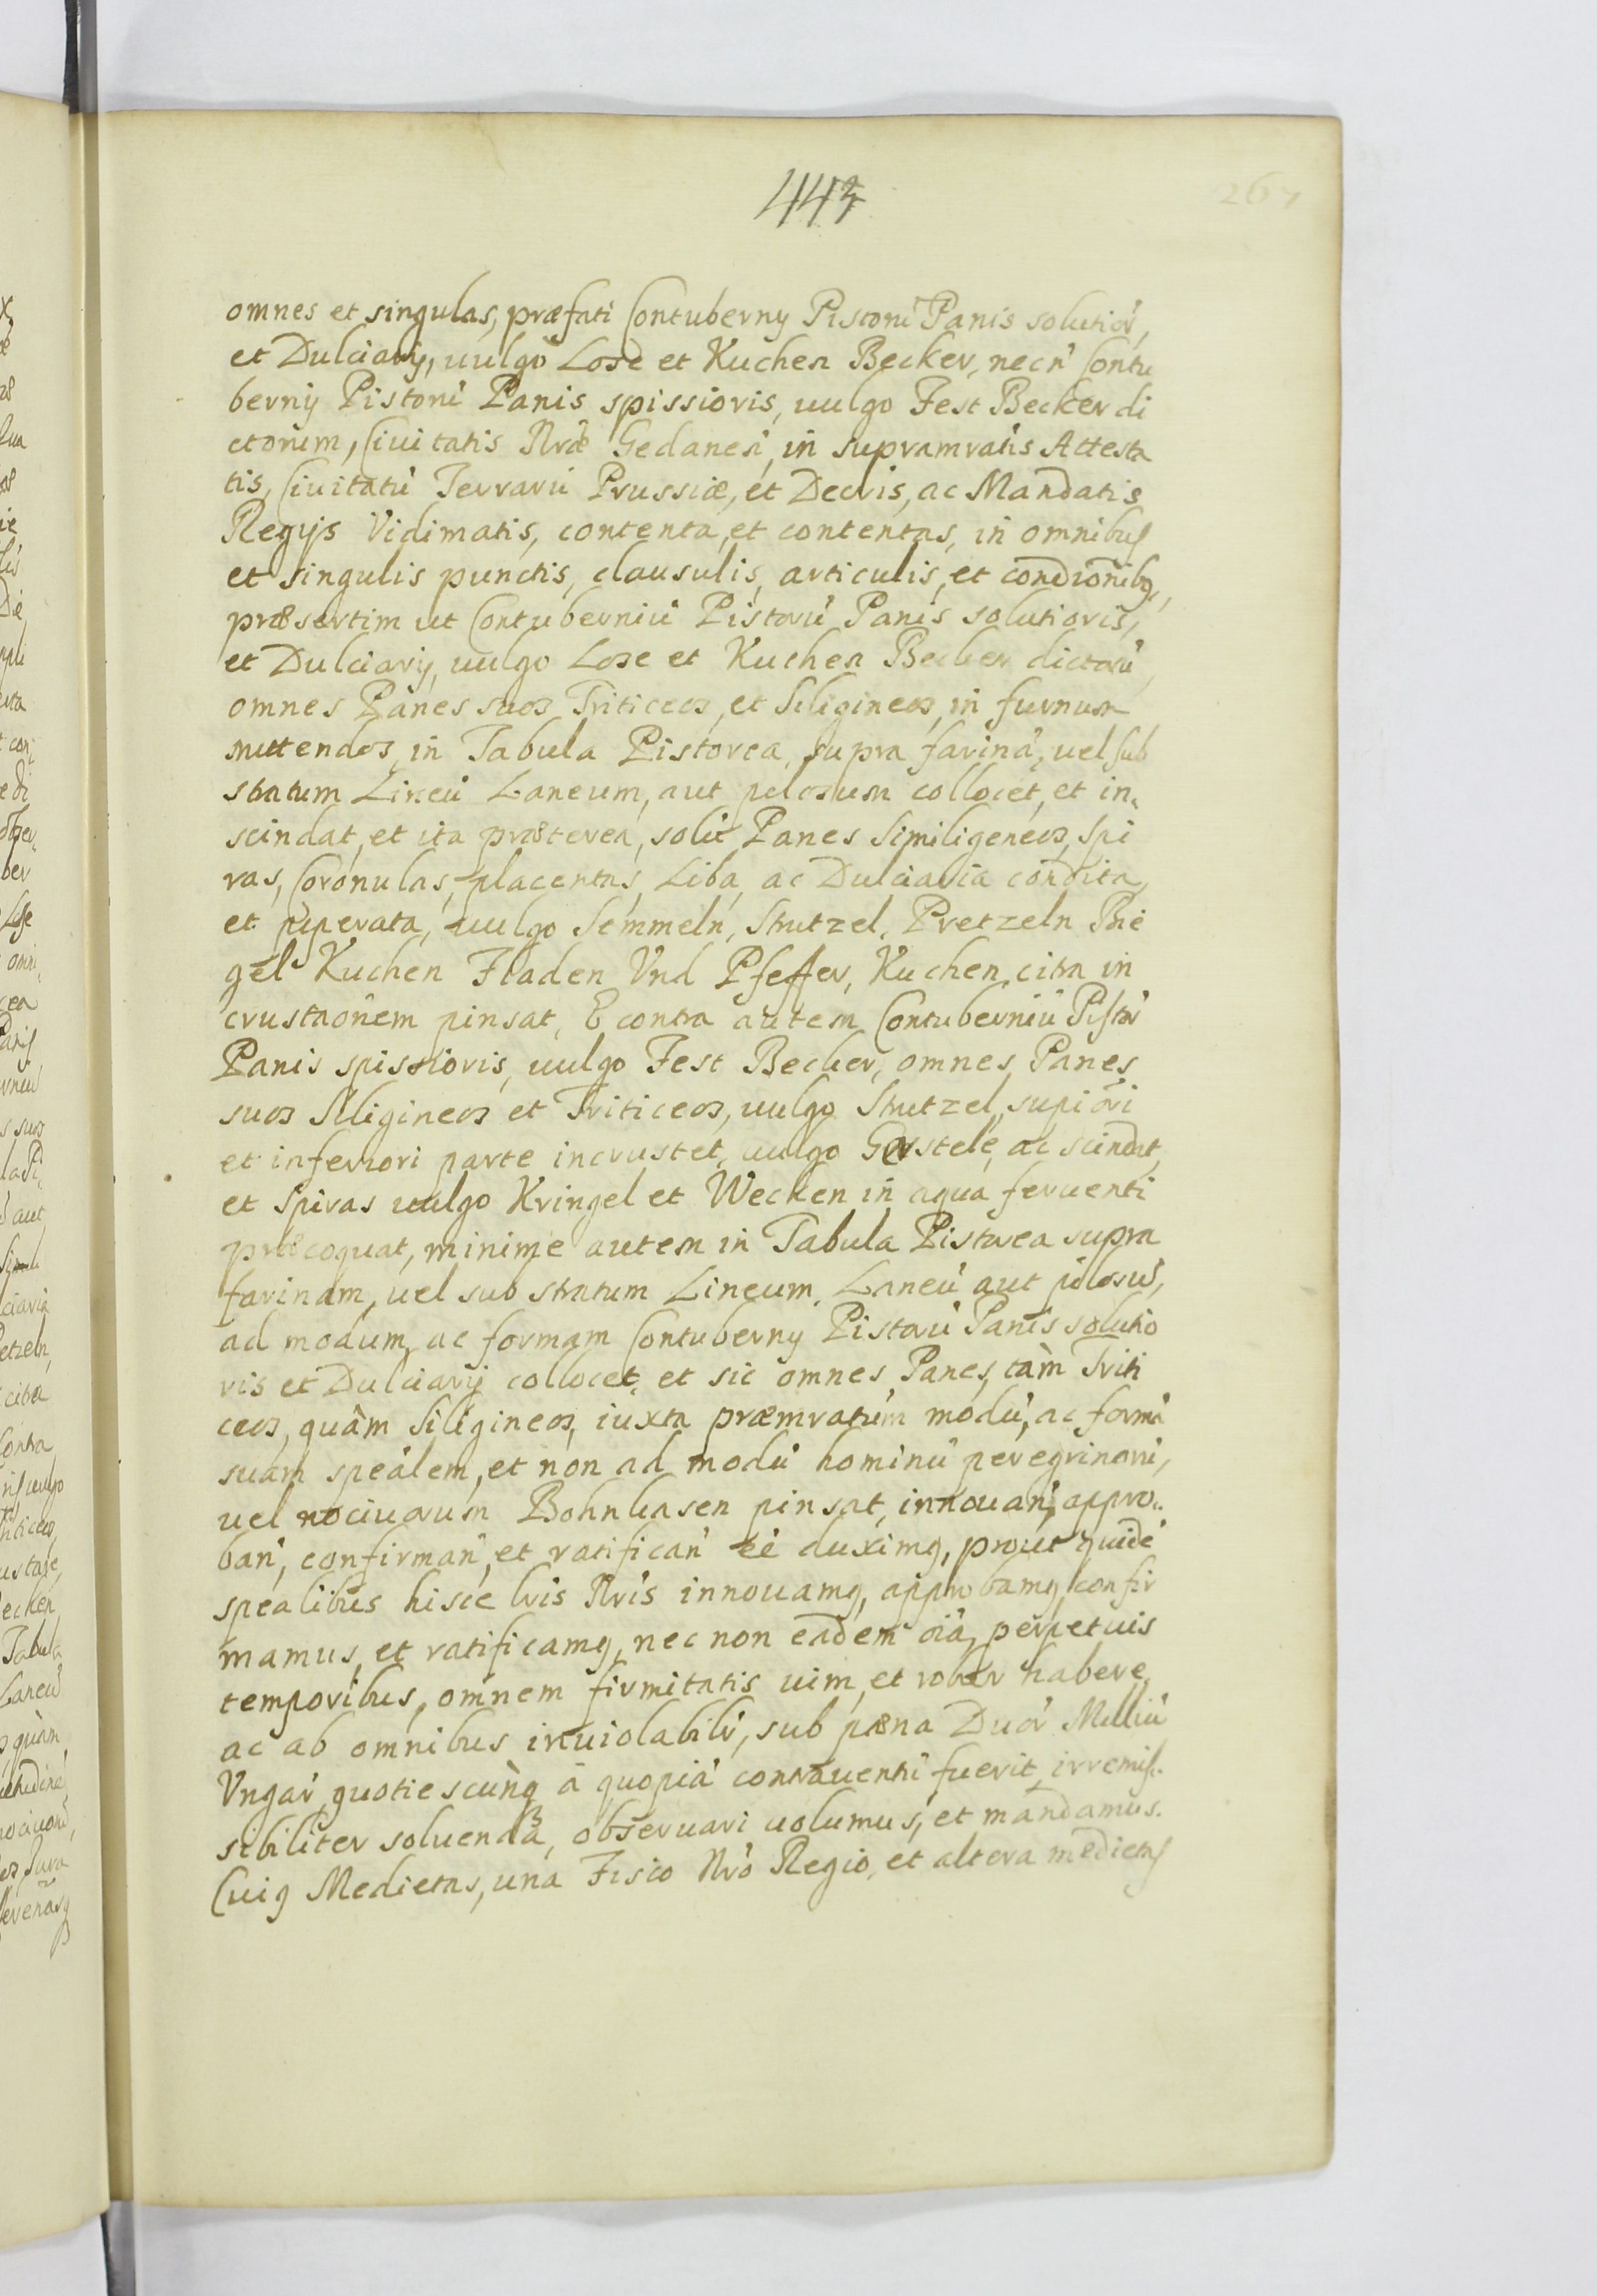 443
267
omnes et singulas, præfati Contuberny Pistorū Panis solutior,
et Dulciarij, uulgo Lose et Kuchen Becker, necń Contu
bernij Pistorū Panis spissioris, uulgo Fest Becker di
ctorum, Ciuitatis Nræ Gedaneń, in supramratis Attesta
tis, Ciuitatū Terrarū Prussiæ, et Decris, ac Mandatis
Regijs Vidimatis, contenta, et contentas, in omnibus
et singulis punctis, clausulis, articulis, et condionibq,
præsertim ut Contuberniū Pistorū Panis solutioris,
et Dulciarij, uulgo Lose et Kuchen Becker dictorū
omnes Panes suos Triticeos, et Siligineos, in furnum
mittendos, in Tabula Pistorea, supra farinā, uel sub
stratum Lineū Laneum, aut pilosum collocet, et in„
scindat, et ita præterea, solū Panes Similigeneos, Spi
ras, Coronulas, placentas, Liba, ac Dulciaria condita,
et piperata, uulgo Semmeln, Strutzel, Pretzeln Prie
gel Kuchen Fladen Vnd Pfeffer, Kuchen, citra in
crustaōnem pinsat, E contra autem Contuberniū Pistor̄
Panis spissioris, uulgo Fest Becker, omnes Panes
suos Siligineos et Triticeos, uulgo Strutzel, supiōri
et inferiori parte incrustet, uulgo Gerstele, ac scindat,
et Spiras uulgo Kringel et Wecken in aqua feruenti
præcoquat, minime autem in Tabula Pistorea supra
farinam, uel sub stratum Lineum, Laneū aut pilosū,
ad modum, ac formam Contuberny Pistorū Panis solutio
ris et Dulciarij collocet, et sic omnes Panes, tàm Triti
ceos, quàm Siligineos, iuxta præmratum modū, ac formā
suam speālem, et non ad modū hominū peregrinorū,
uel nociuorum Bohnhasen pinsat, innouań, appro„
bań, confirmań, et ratificań eē duximq, prout quidē
speālibus hisce lris Nris innouamq, approbamq, confir
mamus, et ratificamq, nec non eadem oīa, perpetuis
temporibus, omnem firmitatis uim, et robor habere,
ac ab omnibus inuiolabilr, sub pæna Duor̄ Milliū
Vngar̄, quotiescunq à quopiā contrauentū fuerit, irremis„
sibiliter soluenda, obseruari uolumus, et mandamus.
Cuiq Medietas, una Fisco Nro Regio, et altera medietas